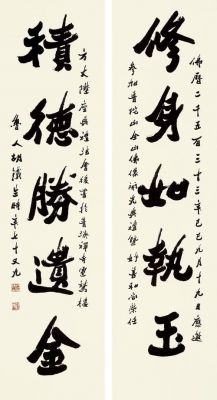 佛曆二千五百三十三年己巳九月十九日應邀
修身如執玉
參加普陀山全山佛像開光典禮暨妙善和尚榮任
方丈陞座典禮法會後書於普濟禪寺樓
積德勝遺金
魯人胡鐵生時年七十又九